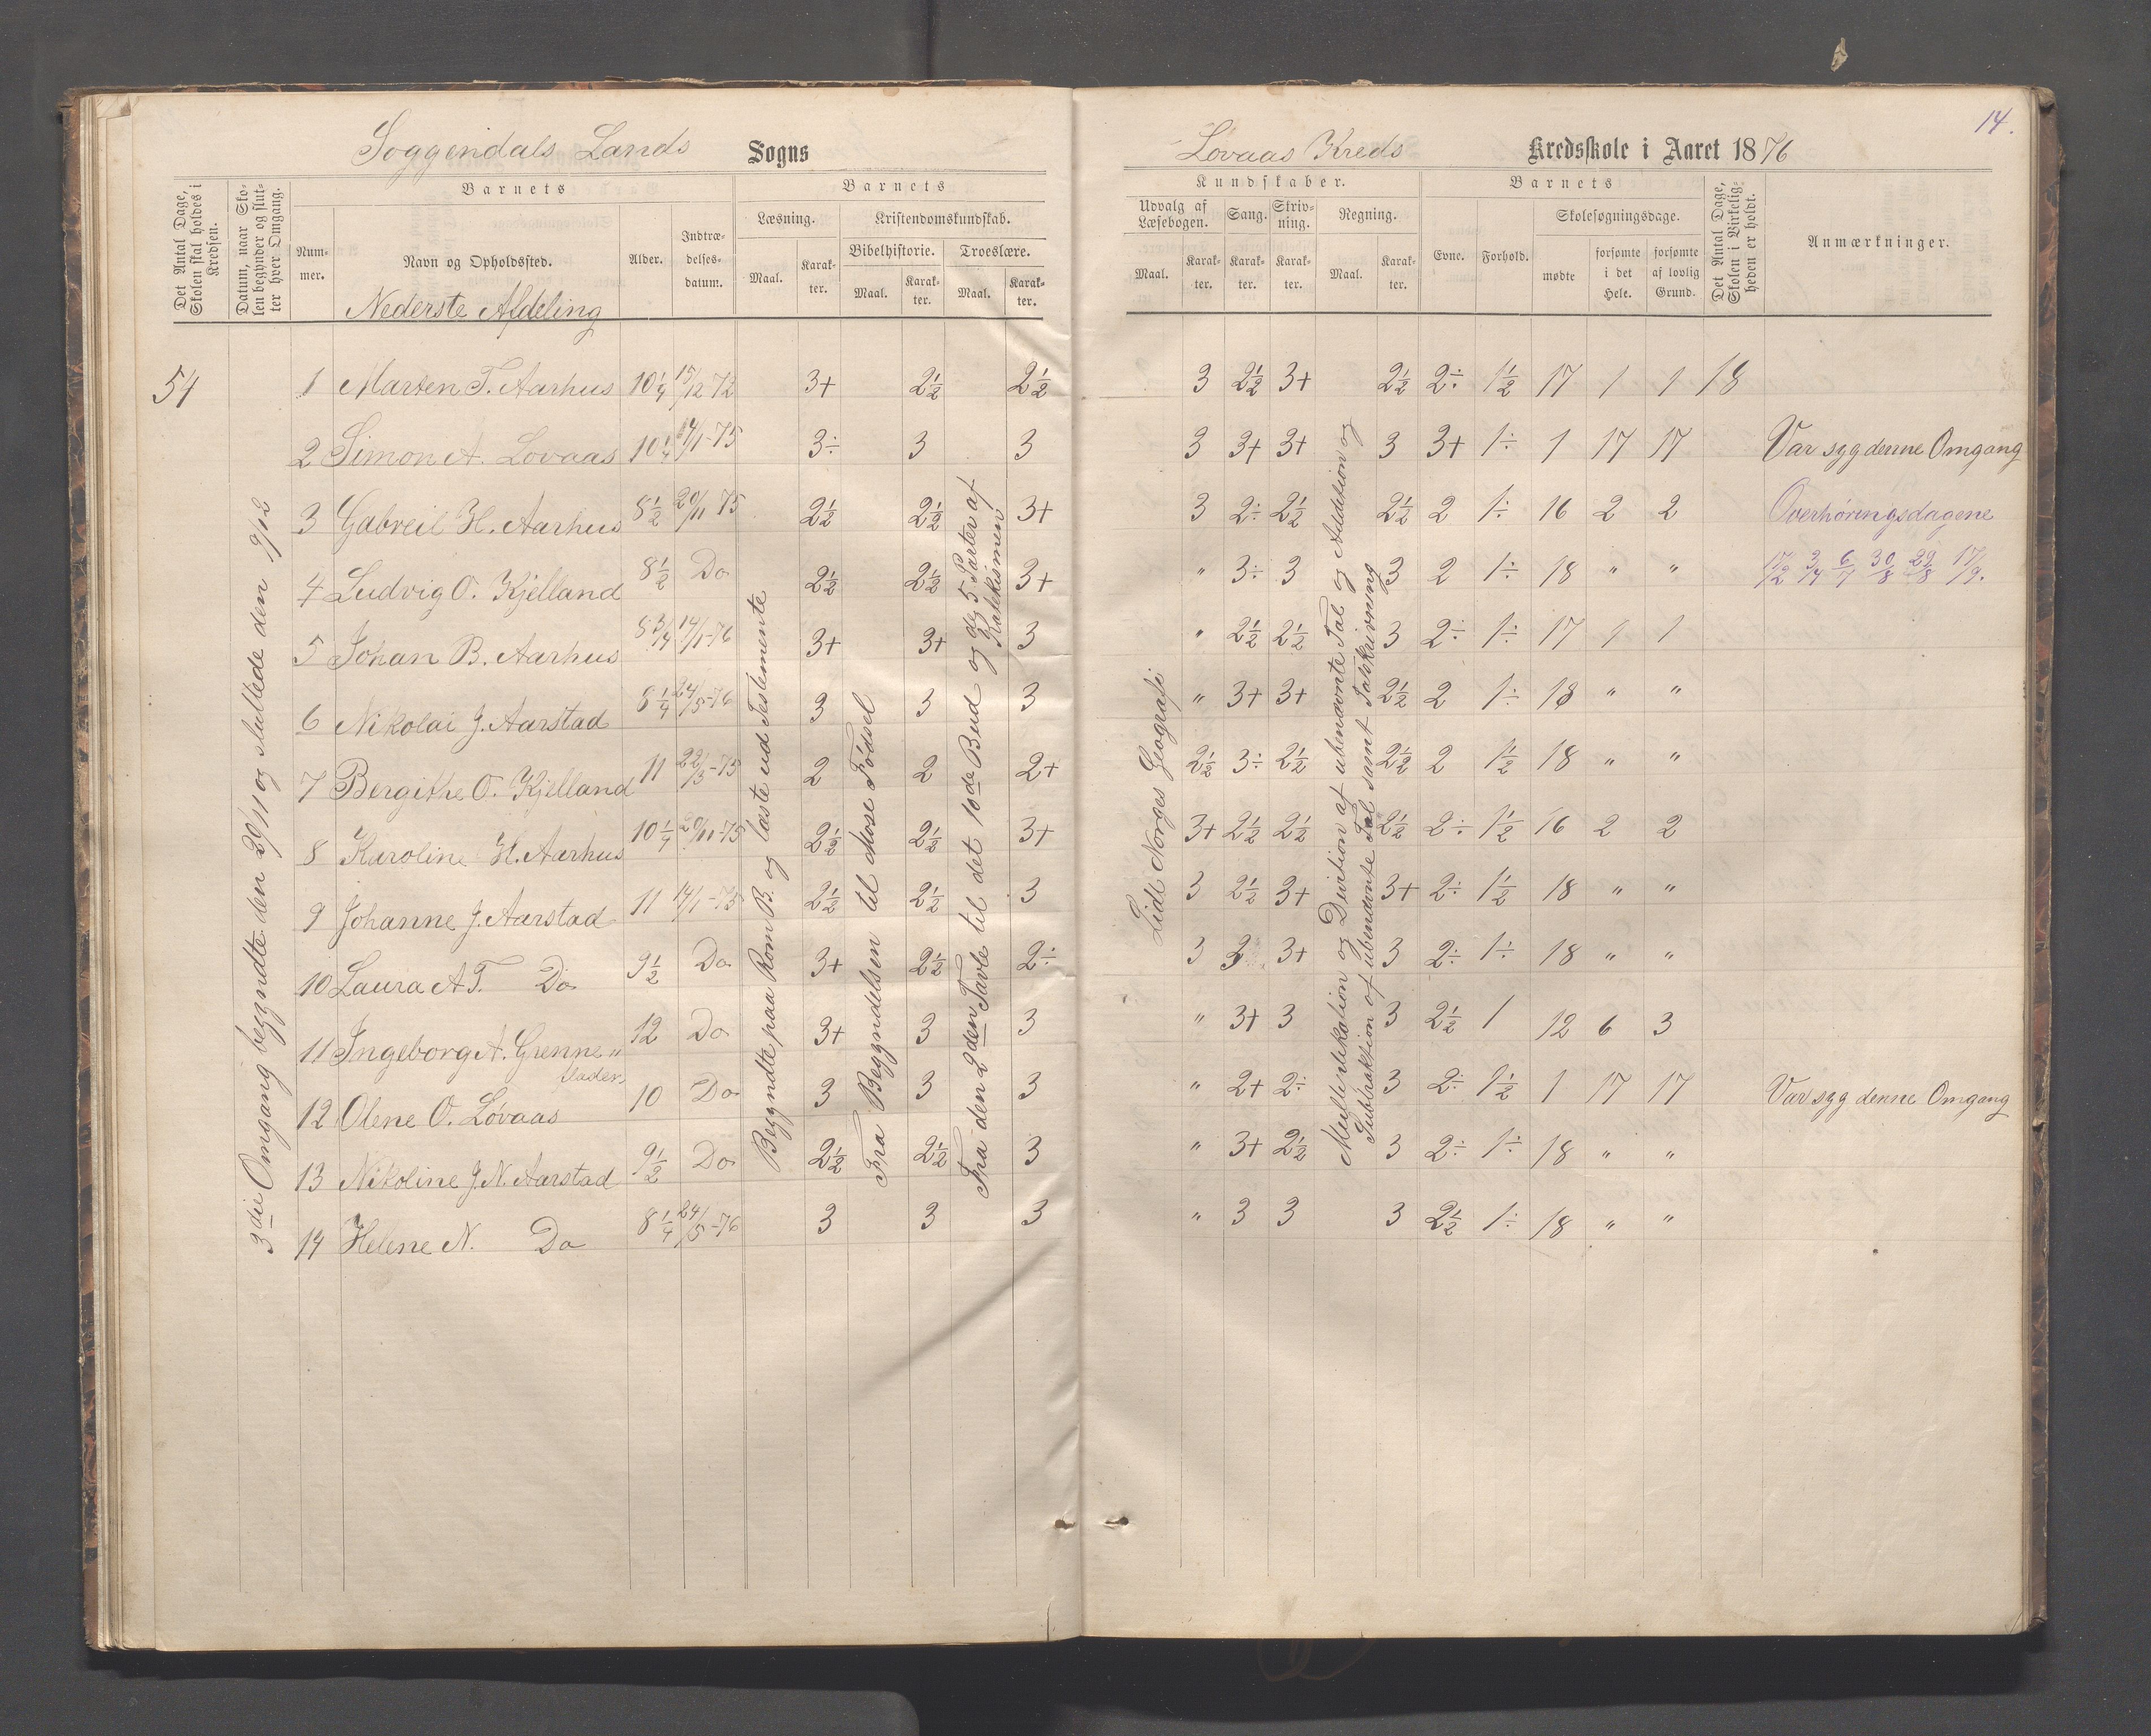 14.
Soggendals Lands Sogns
Lovaas Kreds Kredsskole i Aaret 1876
Det Antal Dage, Skolen skal holdes i Kredsen.
Datum, naar Skolen begynder og slutter hver Omgang.
Barnets
Nummer.
Navn og Opholdssted.
Alder.
Indtrædelsesdatum.
Barnets
Læsning.
Maal.
Karakter.
Kristendomskundskab.
Bibelhistorie.
Maal.
Karakter.
Troeslære.
Maal.
Karakter.
Kundskaber.
Udvalg af Læsebogen.
Maal.
Karakter.
Sang.
Karakter.
Skrivning.
Karakter.
Regning.
Maal.
Karakter.
Barnets
Evne.
Forhold.
Skolesøgningsdage.
mødte
forsømte i det Hele.
forsømte af lovlig Grund.
Det Antal Dage, Skolen i Virkeligheden er holdt.
Anmærkninger.
Nederste Afdeling
54
3die Omgang begyndte den 20/11 og sluttede den 9/12
Begyndte paa Rom B. og læste ud Testemente
Fra Begyndelsen til Mose Fødsel
Fra den 2den Tavle til det 10de Bud og de 5 Parter af
Katekismen
Lidt Norges Geografi
Multiplikation og Divition af ubenævnte Tal og Addition og
Subtraktion af ubenævnte Tal samt Talskrivning
1 Marten T. Aarhus 10 1/4 15/12 72 3+ 2 1/2 2 1/2 3 2 1/2 3+ 2 1/2 2÷ 1 1/2 17 1 1 18
2 Simon A. Lovaas 10 1/4 14/1-75 3÷ 3 3 3 3+ 3+ 3 3+ 1÷ 1 17 17 Var syg denne Omgang
3 Gabreil H. Aarhus 8 1/2 20/11 75 2 1/2 2 1/2 3+ 3 2÷ 2 1/2 2 1/2 2 1÷ 16 2 2 Overhøringsdagene
4 Ludvig O. Kjelland 8 1/2 Do 2 1/2 2 1/2 3+ " 3÷ 3 3 2 1÷ 18 " " 17/2 3/4 6/7 30/8 29/8 17/9.
5 Johan B. Aarhus 8 3/4 14/1-76 3+ 3+ 3 " 2 1/2 2 1/2 3 2÷ 1÷ 17 1 1
6 Nikolai J. Aarstad 8 1/4 24/5-76 3 3 3 " 3+ 3+ 2 1/2 2 1÷ 18 " "
7 Bergithe O. Kjelland 11 22/3-75 2 2 2+ 2 1/2 3÷ 2 1/2 2 1/2 2 1 1/2 18 " "
8 Karoline H. Aarhus 10 1/4 20/11-75 2 1/2 2 1/2 3+ 3+ 2 1/2 2 1/2 2 1/2 2÷ 1 1/2 16 2 2
9 Johanne J. Aarstad 11 14/1-75 2 1/2 2 1/2 3 3 2 1/2 3+ 3+ 2÷ 1 1/2 18 " "
10 Laura A T. Do 9 1/2 Do 3+ 2 1/2 2÷ 3 3 3+ 3 2÷ 1÷ 18 " "
11 Ingeborg A. Grenne„ 12 Do 3+ 3 3 " 3+ 3 3 2 1/2 1 12 6 3
flader
12 Olene O. Løvaas 10 Do 3 3 3 " 2+ 2÷ 3 2÷ 1 1/2 1 17 17 Var syg denne Omgang
13 Nikoline J. N. Aarstad 9 1/2 Do 2 1/2 2 1/2 3 " 3+ 2 1/2 3 2÷ 1÷ 18 " "
14 Helene N. Do 8 1/4 24/5-76 3 3 3 " 3 3 3 2 1/2 1÷ 18 " "